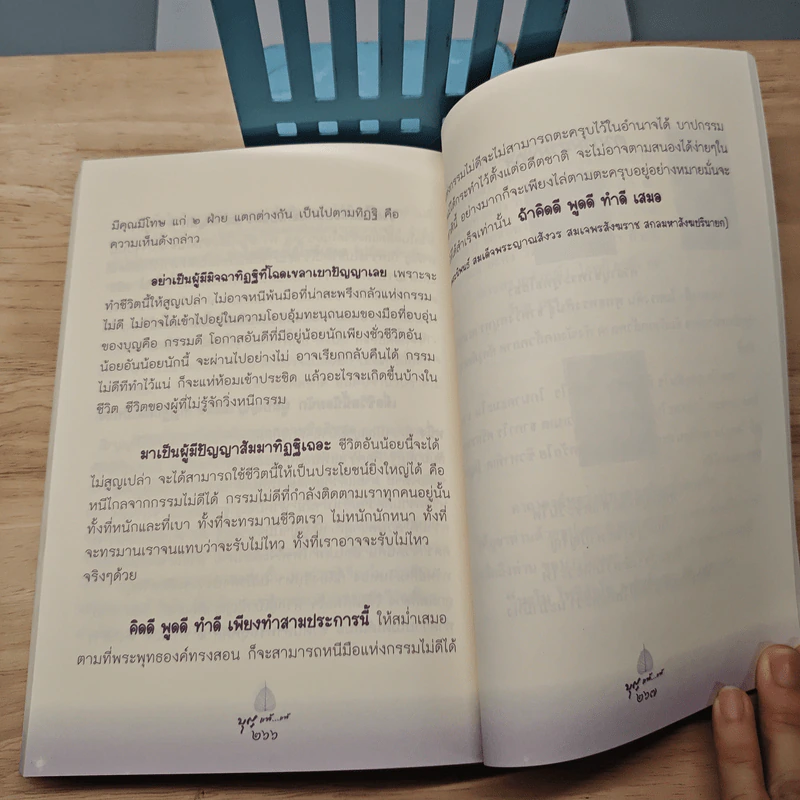 มีคุณมีโทษ แก่ ๒ ฝ่าย แตกต่างกัน เป็นไปตามทิฏฐิ คือ
ความเห็นดังกล่าว
อย่าเป็นผู้มีมิจฉาทิฏฐิที่โฉดเขลาเบาปัญญาเลย เพราะจะ
ทำชีวิตนี้ให้สูญเปล่า ไม่อาจหนีพ้นมือที่น่าสะพรึงกลัวแห่งกรรม
ไม่ดี ไม่อาจได้เข้าไปอยู่ในความโอบอุ้มทะนุถนอมของมือที่อบอุ่น
ของบุญคือ กรรมดี โอกาสอันดีที่มีอยู่น้อยนักเพียงชั่วชีวิตอัน
น้อยอันน้อยนักนี้ จะผ่านไปอย่างไม่ อาจเรียกกลับคืนได้ กรรม
ไม่ดีที่ทำไว้แน่ ก็จะแห่ห้อมเข้าประชิด แล้วอะไรจะเกิดขึ้นบ้างใน
ชีวิต ชีวิตของผู้ที่ไม่รู้จักวิ่งหนีกรรม
มาเป็นผู้มีปัญญาสัมมาทิฏฐิเถอะ ชีวิตอันน้อยนี้จะได้
ไม่สูญเปล่า จะได้สามารถใช้ชีวิตนี้ให้เป็นประโยชน์ยิ่งใหญ่ได้ คือ
หนีไกลจากกรรมไม่ดีได้ กรรมไม่ดีที่กำลังติดตามเราทุกคนอยู่นั้น
ทั้งที่หนักและที่เบา ทั้งที่จะทรมานชีวิตเรา ไม่หนักนักหนา ทั้งที่
จะทรมานเราจนแทบว่าจะรับไม่ไหว ทั้งที่เราอาจจะรับไม่ไหว
จริงๆด้วย
คิดดี พูดดี ทำดี เพียงทำสามประการนี้ ให้สม่ำเสมอ
ตามที่พระพุทธองค์ทรงสอน ก็จะสามารถหนีมือแห่งกรรมไม่ดีได้
บุญ แท้...แท้
๒๖๖
กรรมไม่ดีจะไม่สามารถตะครุบไว้ในอำนาจได้ บาปกรรม
ได้กระทำไว้ตั้งแต่อดีตชาติ จะไม่อาจตามสนองได้ง่ายๆใน
นี้ อย่างมากก็จะเพียงไล่ตามตะครุบอยู่อย่างหมายมั่นจะ
ให้สำเร็จเท่านั้น ถ้าคิดดี พูดดี ทำดี เสมอ
สมเด็จพระญาณสังวร สมเด็จพระสังฆราช สกลมหาสังฆปริณายก)
บุญ แท้...แท้
๒๖๗